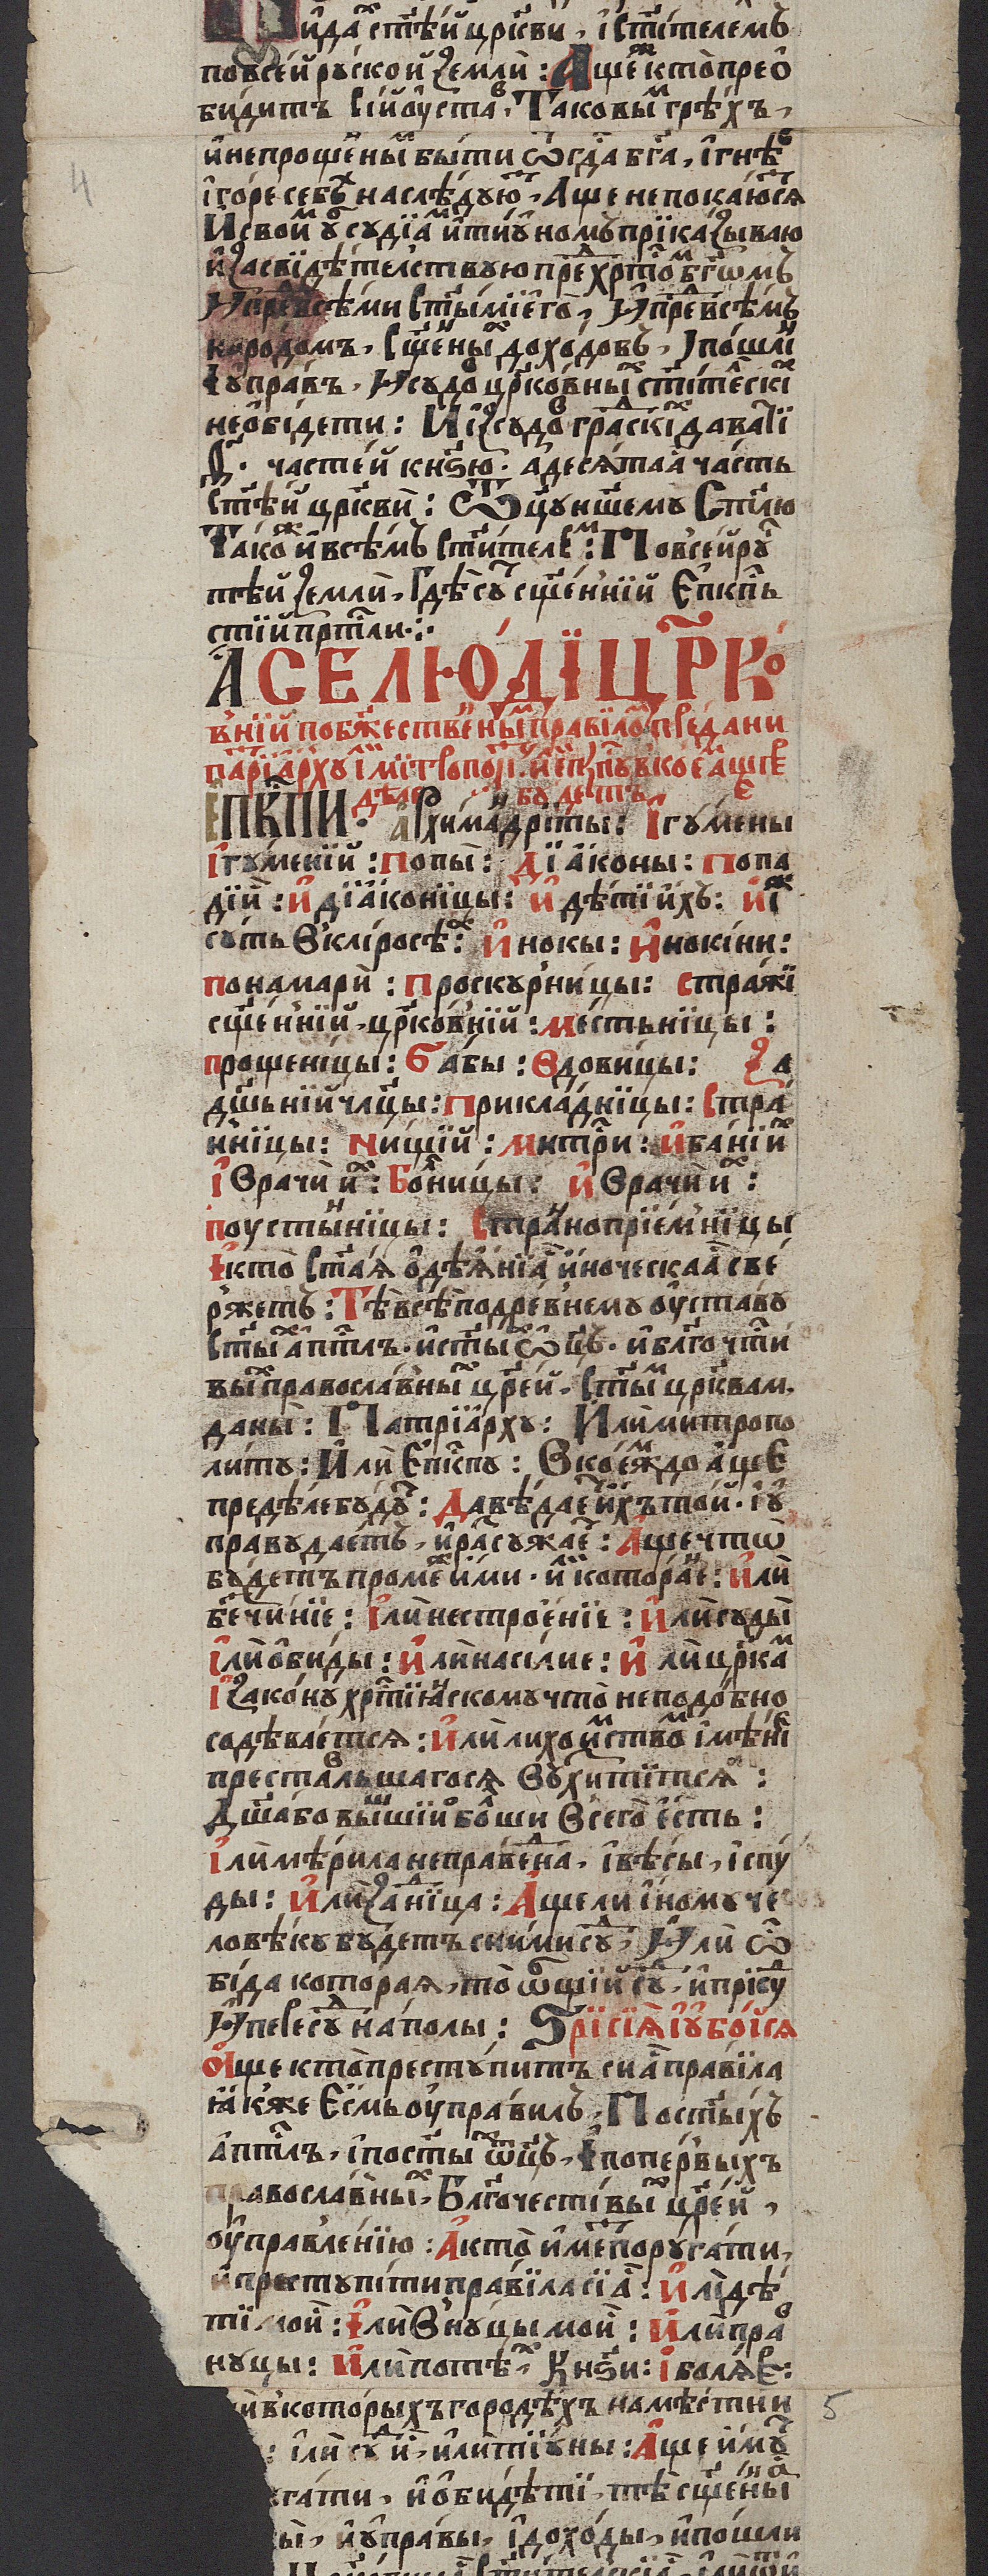 и҆да̀ ст҃ѣ́й цр҃кви, і҆ ст҃ителемъ
повсе́й рꙋ́ской земли̑: Аще кто̀ прео̑
бидитъ сі́й ѹ҆ста́в, Таковы́м грѣ́хъ,
и҆непроще́ны бы́ти ѿ гд҃а бг҃а, і҆ гнѣ́в
і҆ го́ре себѣ̀ наслѣ́дꙋют, Аще не пока́ютсѧ
И свои́м сꙋдїа́м и҆ тїꙋ́номъ прїка́зываю
и҆ засвїдѣ́телствꙋю пред хр҃то́м бг҃ѡмъ
И҆ пред все́ми ст҃ы́мї е҆го̀, И҆ пред всѣ́мъ
наро́домъ, сщ҃е́ных дохо́довъ, і҆ по́шлін
І҆ ѹ҆пра́въ, И сꙋдо́в цр҃ко́вных ст҃и́те́лскіх
не ѻ҆бі́дети: И и҆з сꙋдо́в гра́дскїх дава́тї
д҃. часте́й кнѧ́зю. а҆ десѧ́таѧ ча́сть
ст҃ѣ́й цр҃кви̑: Ѿцꙋ́ на́шемꙋ ст҃и́лю
Та́кож и҆ всѣ́мъ ст҃и́телем: По все́й рꙋс
тѣ́й земли̑, Гдѣ̀ сꙋ́т сщ҃е́ннїй Епкⷭ҇пь
стїй прⷭ҇тли.:
А СЕ ЛЮ́ДЇ ЦР҃КО
внїй по бж҃е́ственым пра́вїлом пре́дани
па́трїа́рхꙋ і҆ мїтропо́л. и҆ епкⷭ҇пꙋ в кое́м а҆ще
дѣле бꙋ́детъ е
ЕПКⷭ҇ПИ. а҆рхима́ндрїты: І҆гꙋ́мены
І҆гꙋ́менїй: Попы̑: Дїа́коны: Попа
ди́й: И҆ дїа́конїцы: И҆ дѣ́тїй и҆́хъ: И҆ їж
сꙋть в клі́росѣх: И҆ноки: И҆ноки́ни:
понамари̑: Проскꙋрни́цы: стра́жї
сщ҃е́ннїй, цр҃ко́внїй: ме́стьнїцы:
проще́нїцы: Ба́бы: вдовицы: За
дш҃ьнїй чл҃цы: Прикла́днїцы: стра́
ннїцы: ни́щїй: мнⷭ҇три: И҆ ба́нїй и҆х
і҆ врачи̑ и҆х: Бо́лницы: И҆ врачи̑ и҆х:
поусты́ннїцы: страннопрїе́мнїцы
і҆ кто̀ ст҃а́ѧ о҆дѣѧ́нїа и҆ноческаа̑ све́
ржетъ: Тѣ̀ всѣ̀ по дре́внемꙋ ѹ҆ста́вꙋ
ст҃ы́х а҆пⷭ҇тлъ. и҆ ст҃ы́х ѻ҆ц҃ъ. и҆ бл҃гочⷭ҇ти́
вы́х правосла́вных цр҃е́й, ст҃ы́м цр҃квам.
даны̑: Патрїа́рхꙋ: Или̑ митропо
ли́тꙋ: И҆ли̑ Епкⷭ҇пꙋ: в ко́емждо а҆ще
преде́ле бꙋ́дꙋт: Да вѣ́дает и҆́хъ то́й. і҆ ѹ҆
пра́вꙋ дае́тъ, и҆ разсꙋжа́ет: Аще что̀
бꙋ́детъ проме́ж и҆́ми. и҆ кото́ранїе: И҆ли̑
бечи́нїе: І҆ли̑ нестрое́нїе: И҆ли̑ сꙋды̑
І҆ли̑ ѻ҆би́ды: И҆ли̑ наси́лие: И҆ли̑ цр҃ка́м
І҆ зако́нꙋ хрⷭ҇тїа́нскомꙋ что̀ неподо́бно
содѣва́етсѧ: И҆ли̑ лихои́мством і҆мѣ́нїе
преста́вльшагосѧ восхити́тсѧ:
Дш҃а бо вы́шїй бо́лши всего̀ е́сть:
І҆ли̑ мѣ́рила непра́ведна, і҆ вѣ́сы, і҆ спꙋ́
ды: И҆ли̑ за́дница: Аще ли и҆но́мꙋ че
ловѣ́кꙋ бꙋ́детъ с ни́ми сꙋ́д, И҆ли̑ ѻ҆
би́да кото́раѧ, то̀ ѻ҆́бщїй сꙋ́д, и҆ прїсꙋ́д
И҆ пере́сꙋд на́полы: Зрї сїѧ̑ і҆ ѹ҆бо́йсѧ
Аще кто̀ престꙋ́питъ сиа̑ пра́вїла
ꙗ҆́кже Е́смь ѹ҆пра́вилъ, По ст҃ы́хъ
а҆пⷭ҇тлъ, і҆ по ст҃ы́х ѻ҆ц҃ъ, І҆ по пе́рвыхъ
правосла́вных, Бл҃гочести́вых цр҃е́й,
ѹ҆правле́нїю: А҆ кто̀ и҆́мет порꙋга́ти,
и҆ престꙋпи́ти пра́вїла сїа̑: И҆лі дѣ́
тї мои̑: І҆ли̑ внꙋ́цы мои̑: И҆ли̑ прав
нꙋцы: И҆ли̑ по те́х, Кнѧ́зи: І҆ болѧ́ре:
и҆ в кото́рыхъ городѣ́хъ намѣ́стни
: і҆ли̑ сꙋдїй, и҆ли̑ тїꙋ́ны: Аще и҆́мꙋт
гати, и҆ ѻ҆бидѣ́тї, тѣ̀ сщ҃е́ныѧ
ы̑, и҆ ѹ҆пра́вы, і҆ дохо́ды, и҆ по́шли